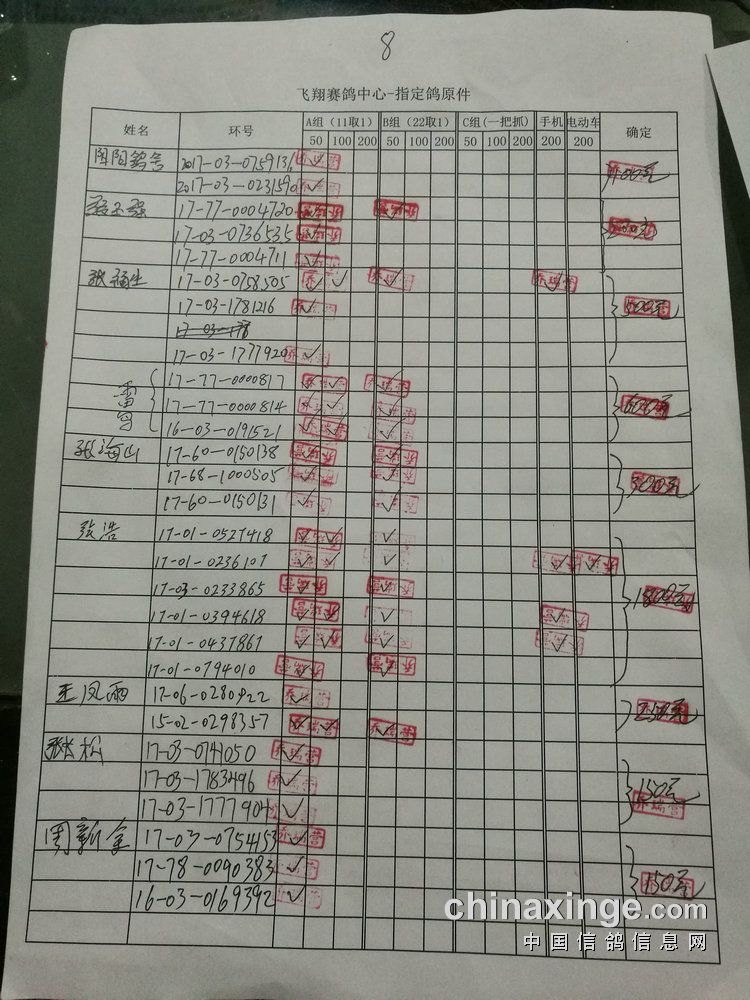 8
飞翔赛鸽中心-指定鸽原件
姓名 环号 A组（11取1） B组（22取1） C组(一把抓) 手机 电动车 确定
50 100 200 50 100 200 50 100 200 200 200
鸽舍 2017-03-0759136 ✓
2017-03-0231590 ✓
17-77-0004720 ✓ ✓
17-03-0736535 ✓
17-77-0004711 ✓
张福生 17-03-0758505 乔 ✓ 乔瑞营 ✓ 乔瑞营 ✓ 500元
17-03-1781216 ✓
17-03-1777920 ✓
雷鸣 17-77-0000817 ✓ ✓ ✓ 600元
17-77-0000814 ✓ ✓ ✓
16-03-0191521 ✓ ✓ ✓
张海山 17-60-0150138 ✓ ✓ 300元
17-68-1000505 ✓ ✓
17-60-0150131 ✓ ✓
张浩 17-01-0527418 ✓ ✓ ✓
17-01-0236107 ✓ ✓ ✓ ✓ ✓
17-03-0233865 ✓ ✓
17-01-0394618 ✓ ✓ ✓ 1800元
17-01-0437867 ✓ ✓ ✓ ✓
17-01-0794010 ✓ ✓
王凤雨 17-06-0280922 ✓ 250元
15-02-0298357 ✓ ✓ ✓
张松 17-03-0741050 乔瑞营 ✓
17-03-1783496 ✓ 150元 乔瑞营
17-03-1777904 ✓
周新金 17-03-0754153 乔瑞营 ✓
17-78-0090383 ✓ 150元
16-03-0169392 ✓
chinaxinge.com
中国信鸽信息网